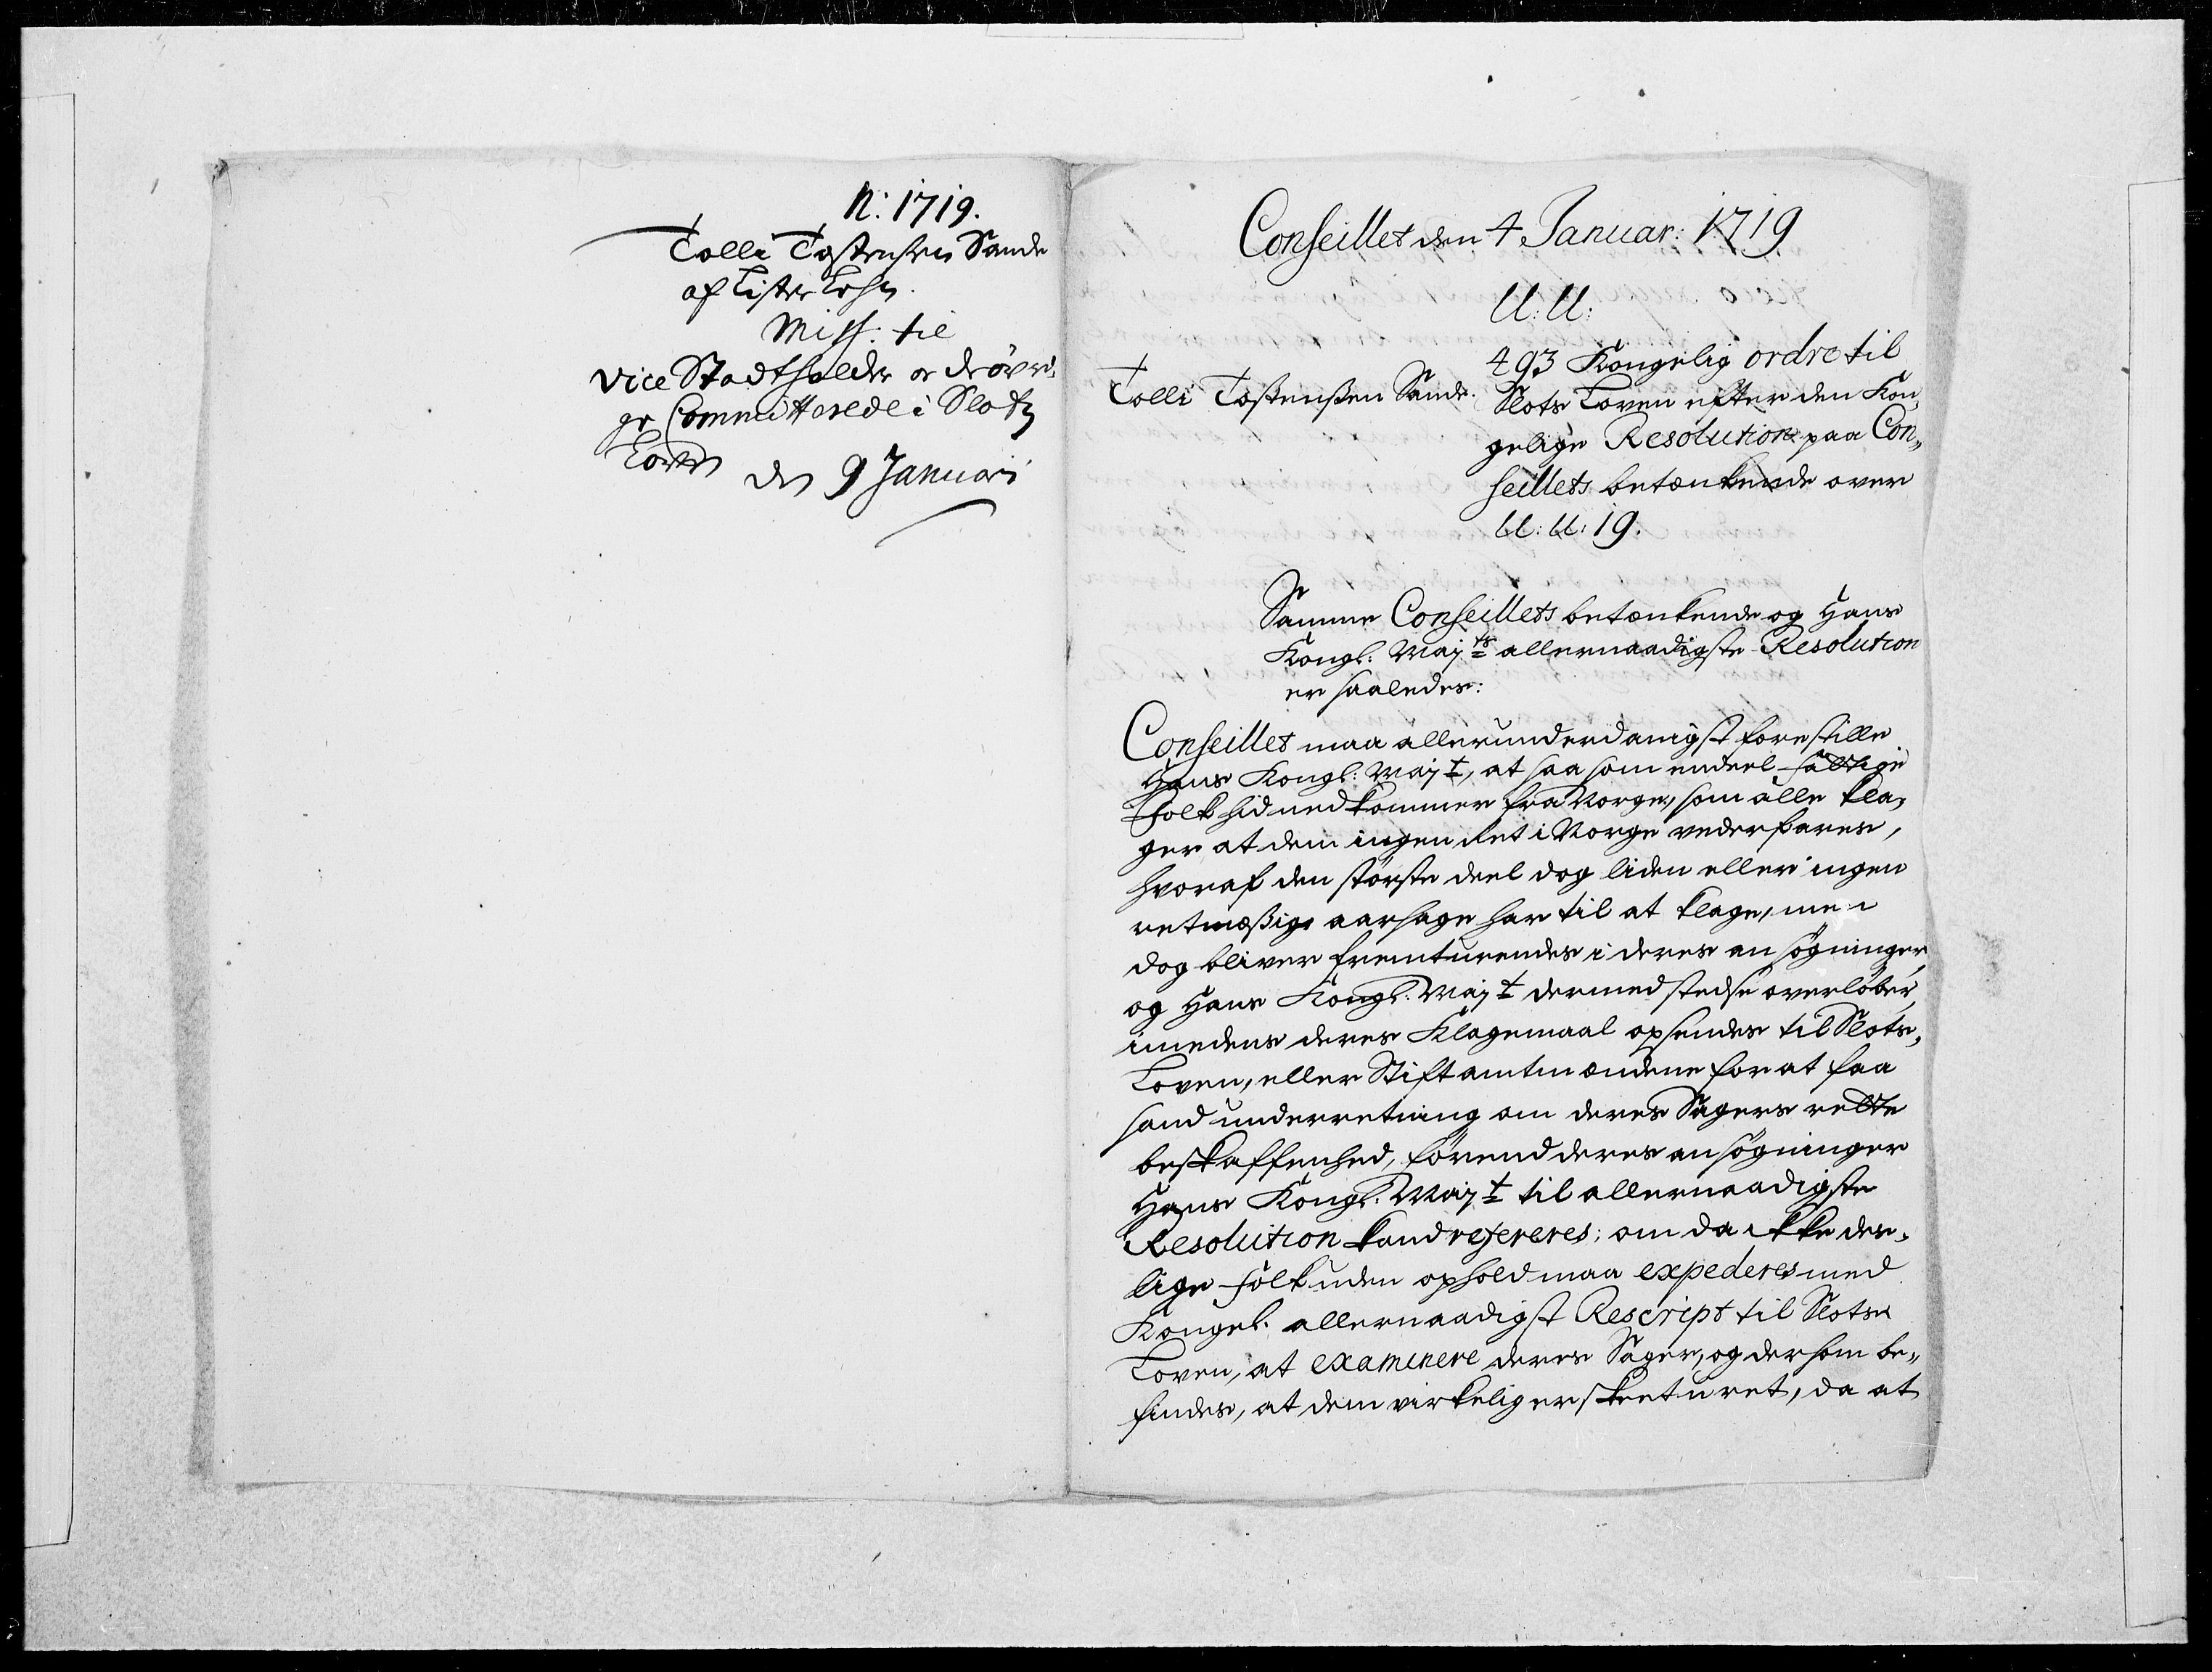 N: 1719.
Tolli Tostensen Sande
af Lister Lehn.
Miss: til
Vice Stadtholder oc de övri,
ge Committerede i Slotz
Loven
den 9 Januari
Conseillet den 4 Januar: 1719
U: U:
Tolli Tostensen Sande.
493 Kongelig ordre til
Slots Loven efter den Kon„
gelige Resolution paa Con„
seillets betænkende over
U: U: 19.
Samme Conseillets betænkende og Hans
Kongl: Maj:ts allernaadigste Resolution
er saaledes:
Conseillet maa allerunderdanigst forestille
Hans Kongl: Maj:t, at saa som endeel fattige
folk hid ned kommer fra Norge, som alle kla„
ger at dem ingen Ret i Norge vederfares,
hvoraf den störste deel dog liden eller ingen
retmæssige aarsage har til at klage, men
dog bliver fremturendes i deres ansögninger,
og Hans Kongl: Maj:t dermed stedse overlöber,
imedens deres Klagemaal opsendes til Slots„
Loven, eller Stiftamtmændene for at faa
sand underretning om deres Sagers rette
beskaffenhed, förend deres ansögninger
Hans Kongl: Maj:t til allernaadigste
Resolution kand refereres; om da ikke des„
lige folk uden ophold maa expederes med
Kongel. allernaadigst Rescript til Slots
Loven, at examinere deres Sager, og dersom be„
findes, at dem virkelig er skeet uret, da at